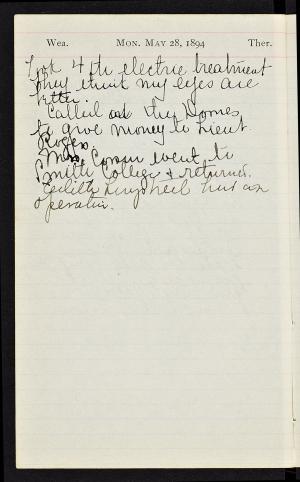 Wea. MON. MAY 28, 1894 Ther.
Took 4th electric treatment
They think my eyes are
better.
Called at the Homes
to give money to Lieut
Rogers.
Mrs. Cowan went to
Smith College & returned.
has an
operation.